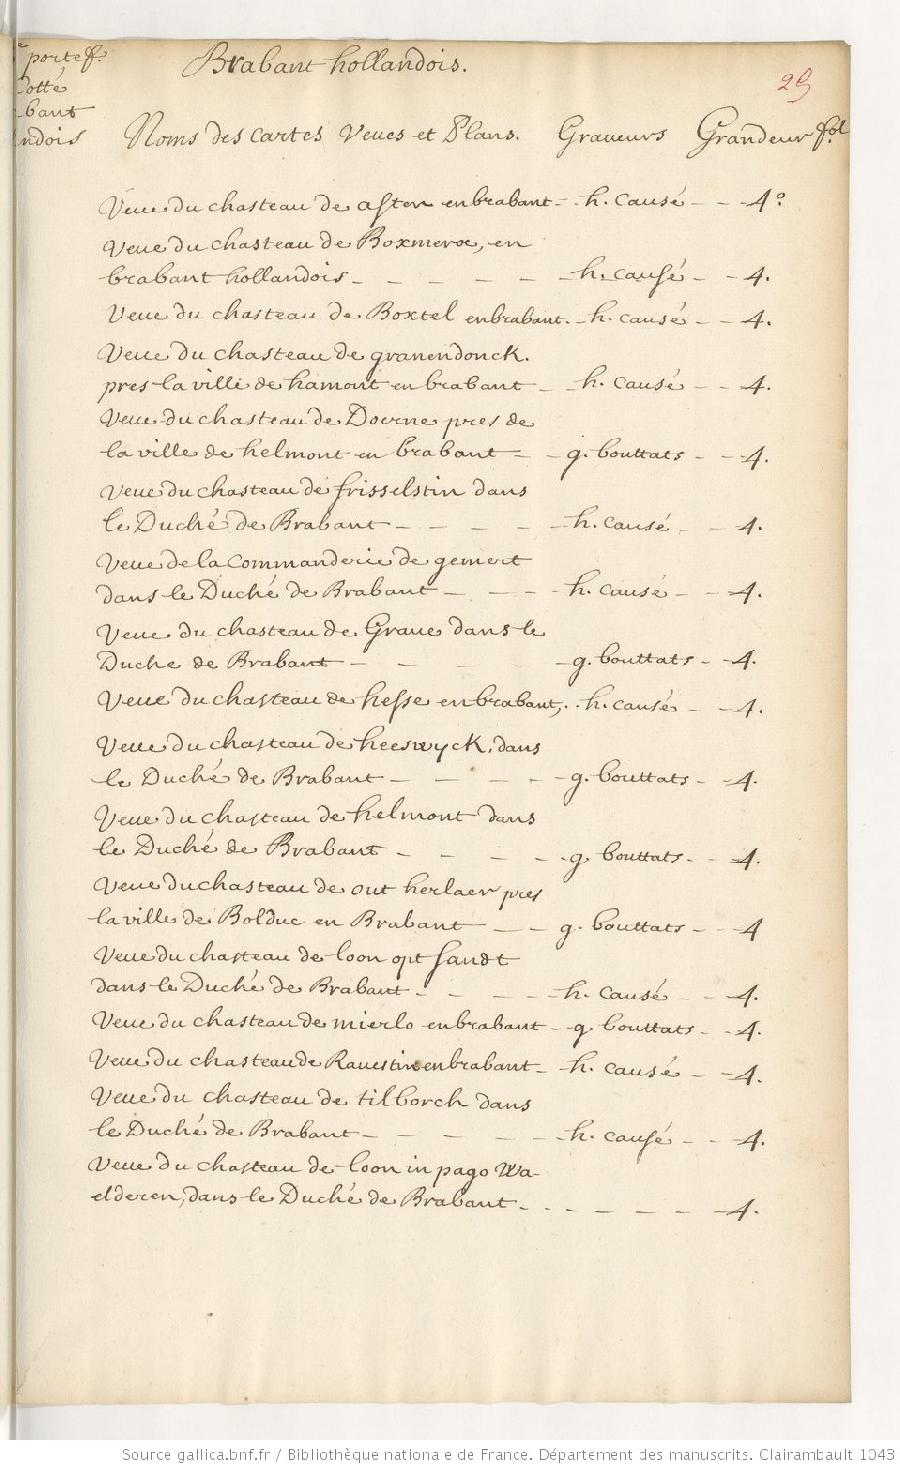 portef.
Cotté
bant
ndois
Brabant hollandois.
29
Noms des cartes Veues et Plans. Graveurs Grandeur fol.
Veue du chasteau de asten en brabant - h. causé - - 4°.
Veue du chasteau de Boxmere, en
brabant hollandois - - - - - - h. causé - - 4.
Veue du chasteau de Boxtel en brabant. - h. causé - - 4.
Veue du chasteau de granendonck.
pres la ville de hamont en brabant - - h. causé - - 4.
Veue du chasteau de Doerne pres de
la ville de helmont en brabant - - g. bouttats - - 4.
Veue du chasteau de frisselstin dans
le Duché de Brabant - - - - - h. causé - - 4.
Veue de la commanderie de gemert
dans le Duché de Brabant - - - - h. causé - - 4.
Veue du chasteau de Grave dans le
Duche de Brabant - - - - g. bouttats - - 4.
Veue du chasteau de hesse en brabant, - h. causé - - 4.
Veue du chasteau de heeswyck, dans
le Duché de Brabant - - - - - g. bouttats - - 4.
Veue du chasteau de helmont dans
le Duché de Brabant - - - - - g. bouttats - - 4.
Veue du chasteau de out herlaer pres
la ville de Bolduc en Brabant - - g. bouttats - - 4
Veue du chasteau de loon opt sandt
dans le Duché de Brabant - - - - h. causé - - 4.
Veue du chasteau de mierlo en brabant - g. bouttats - - 4.
Veue du chasteau de Ravestin en brabant - h. causé - - 4.
Veue du chasteau de tilborch dans
le Duché de Brabant - - - - - - h. causé - - 4.
Veue du chasteau de loon in pago Wa-
elderen, dans le Duché de Brabant - - - - - - 4.
Source gallica.bnf.fr / Bibliothèque nationale de France. Département des manuscrits. Clairambault 1043